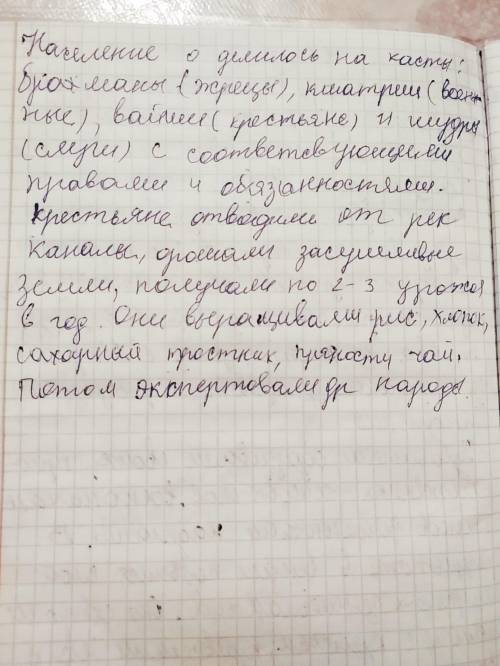 Население о делилось на касты:
брахманы (жрецы), кшатрии (воен-
ные), вайшии (крестьяне) и шудры
(слуги) с соответсвующими
правами и обязанностями.
Крестьяне отводили от рек
каналы, орошали засушливые
земли, получали по 2-3 урожая
в год. Они выращивали рис, хлопок,
сахарный тростник, пряности чай.
Потом экспертовали др народы.